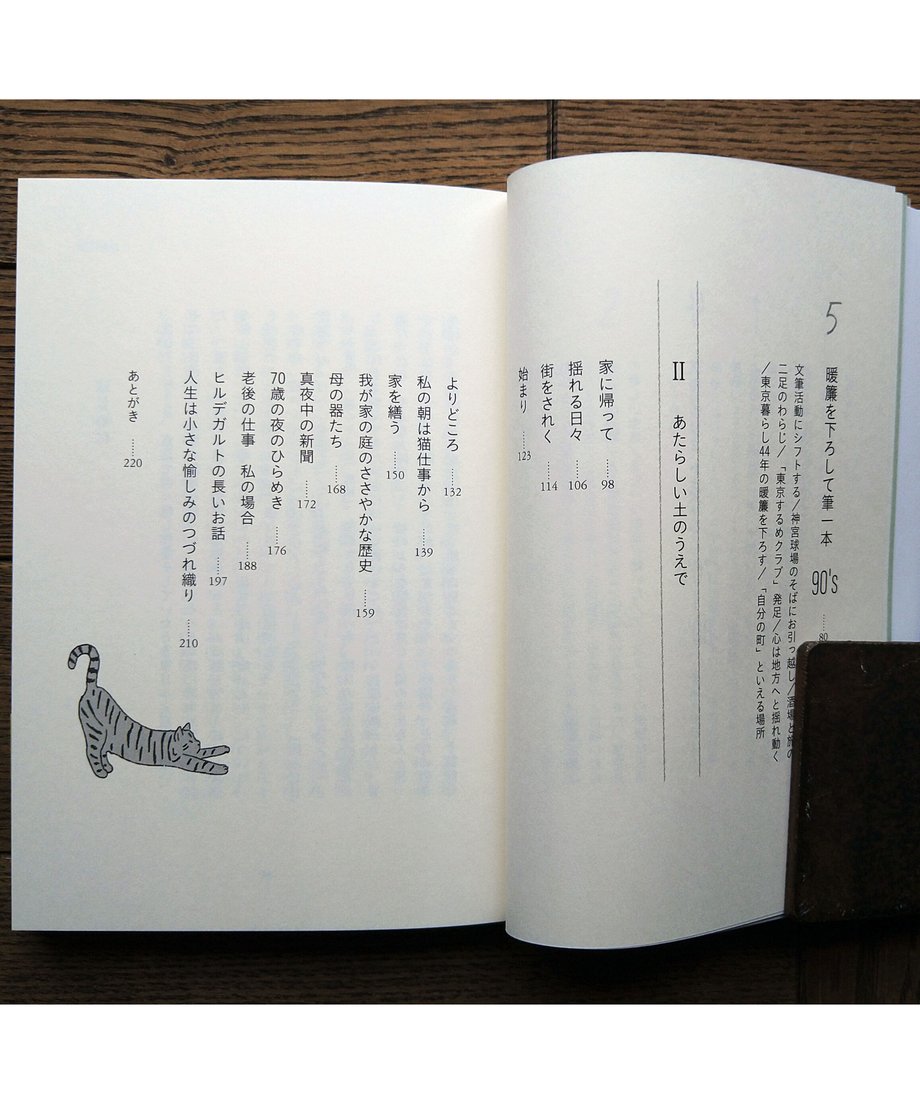 5 暖簾を下ろして筆一本 90's ……80
文筆活動にシフトする/神宮球場のそばにお引っ越し/酒場と旅の
二足のわらじ/「東京するめクラブ」発足/心は地方へと揺れ動く
/東京暮らし44年の暖簾を下ろす/「自分の町」といえる場所
II あたらしい土のうえで
家に帰って ……98
揺れる日々 ……106
街をされく ……114
始まり ……123
よりどころ ……132
私の朝は猫仕事から ……139
家を繕う ……150
我が家の庭のささやかな歴史 ……159
母の器たち ……168
真夜中の新聞 ……172
70歳の夜のひらめき ……176
老後の仕事 私の場合 ……188
ヒルデガルトの長いお話 ……197
人生は小さな愉しみのつづれ織り ……210
あとがき ……220